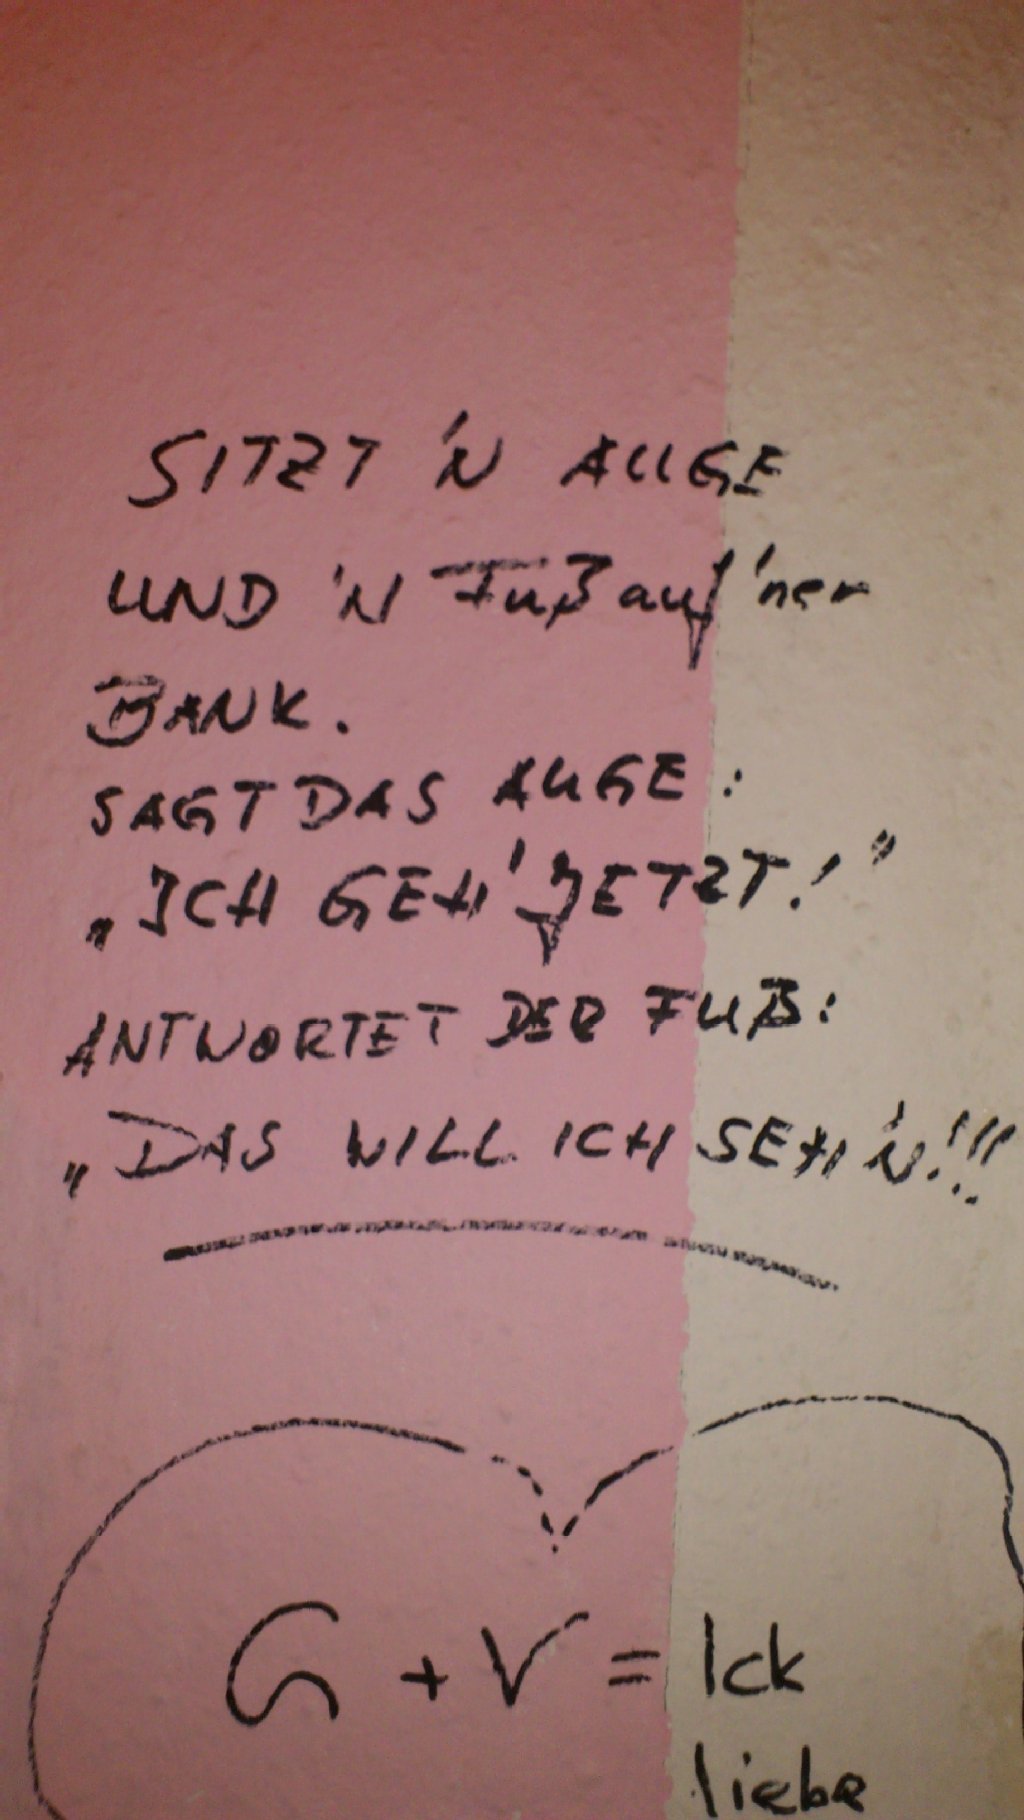 SITZT 'N AUGE
UND 'N Fuß auf 'ner
BANK.
SAGT DAS AUGE:
„ICH GEH' JETZT!"
ANTWORTET DER FUß:
„DAS WILL ICH SEH'N!!!
G + V = Ick
liebe